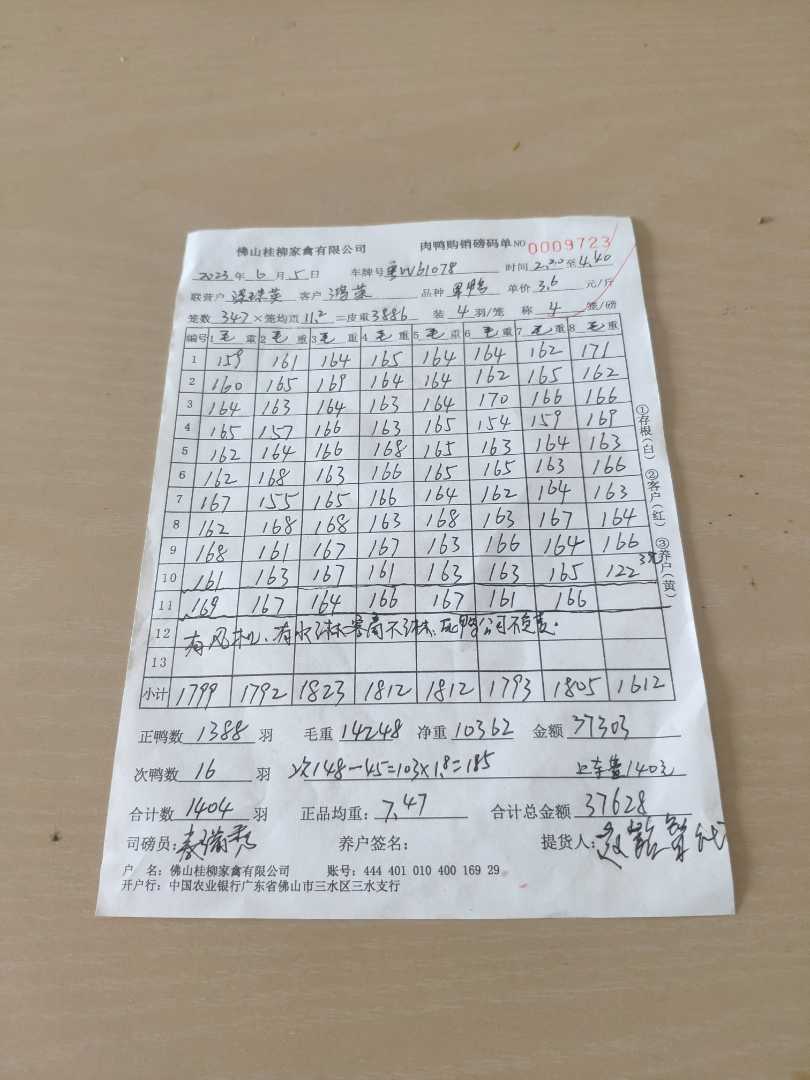 佛山桂柳家禽有限公司 肉鸭购销磅码单 NO 0009723
2023年6月5日 车牌号 粤W61078 时间 2.20至4.40
联营户 客户 鸿 品种 单价 3.6 元/斤
笼数 347×笼均重 11.2=皮重 3886 装 4 羽/笼 称 4 笼/磅
编号 1毛重 2毛重 3毛重 4毛重 5毛重 6毛重 7毛重 8毛重
1 159 161 164 165 164 164 162 171
2 160 165 169 164 164 162 165 162
3 164 163 164 163 164 170 166 166
4 165 157 166 163 165 154 159 169
5 162 164 166 168 165 163 164 163
6 162 168 163 166 165 165 163 166
7 167 155 165 166 164 162 164 163
8 162 168 168 163 168 163 167 164
9 168 161 167 167 163 166 164 166
10 161 163 167 161 163 163 165 122 3笼
11 169 167 164 166 167 161 166
12 有风机、有水淋、客商不淋、死鸭公司不负责.
13
小计 1799 1792 1823 1812 1812 1793 1805 1612
①存根(白) ②客户(红) ③养户(黄)
正鸭数 1388 羽 毛重 14248 净重 10362 金额 37303
次鸭数 16 羽 次148-45=103×1.8=185 上车费140元
合计数 1404 羽 正品均重: 7.47 合计总金额 37628
司磅员: 养户签名: 提货人:
户 名: 佛山桂柳家禽有限公司 账号: 444 401 010 400 169 29
开户行: 中国农业银行广东省佛山市三水区三水支行